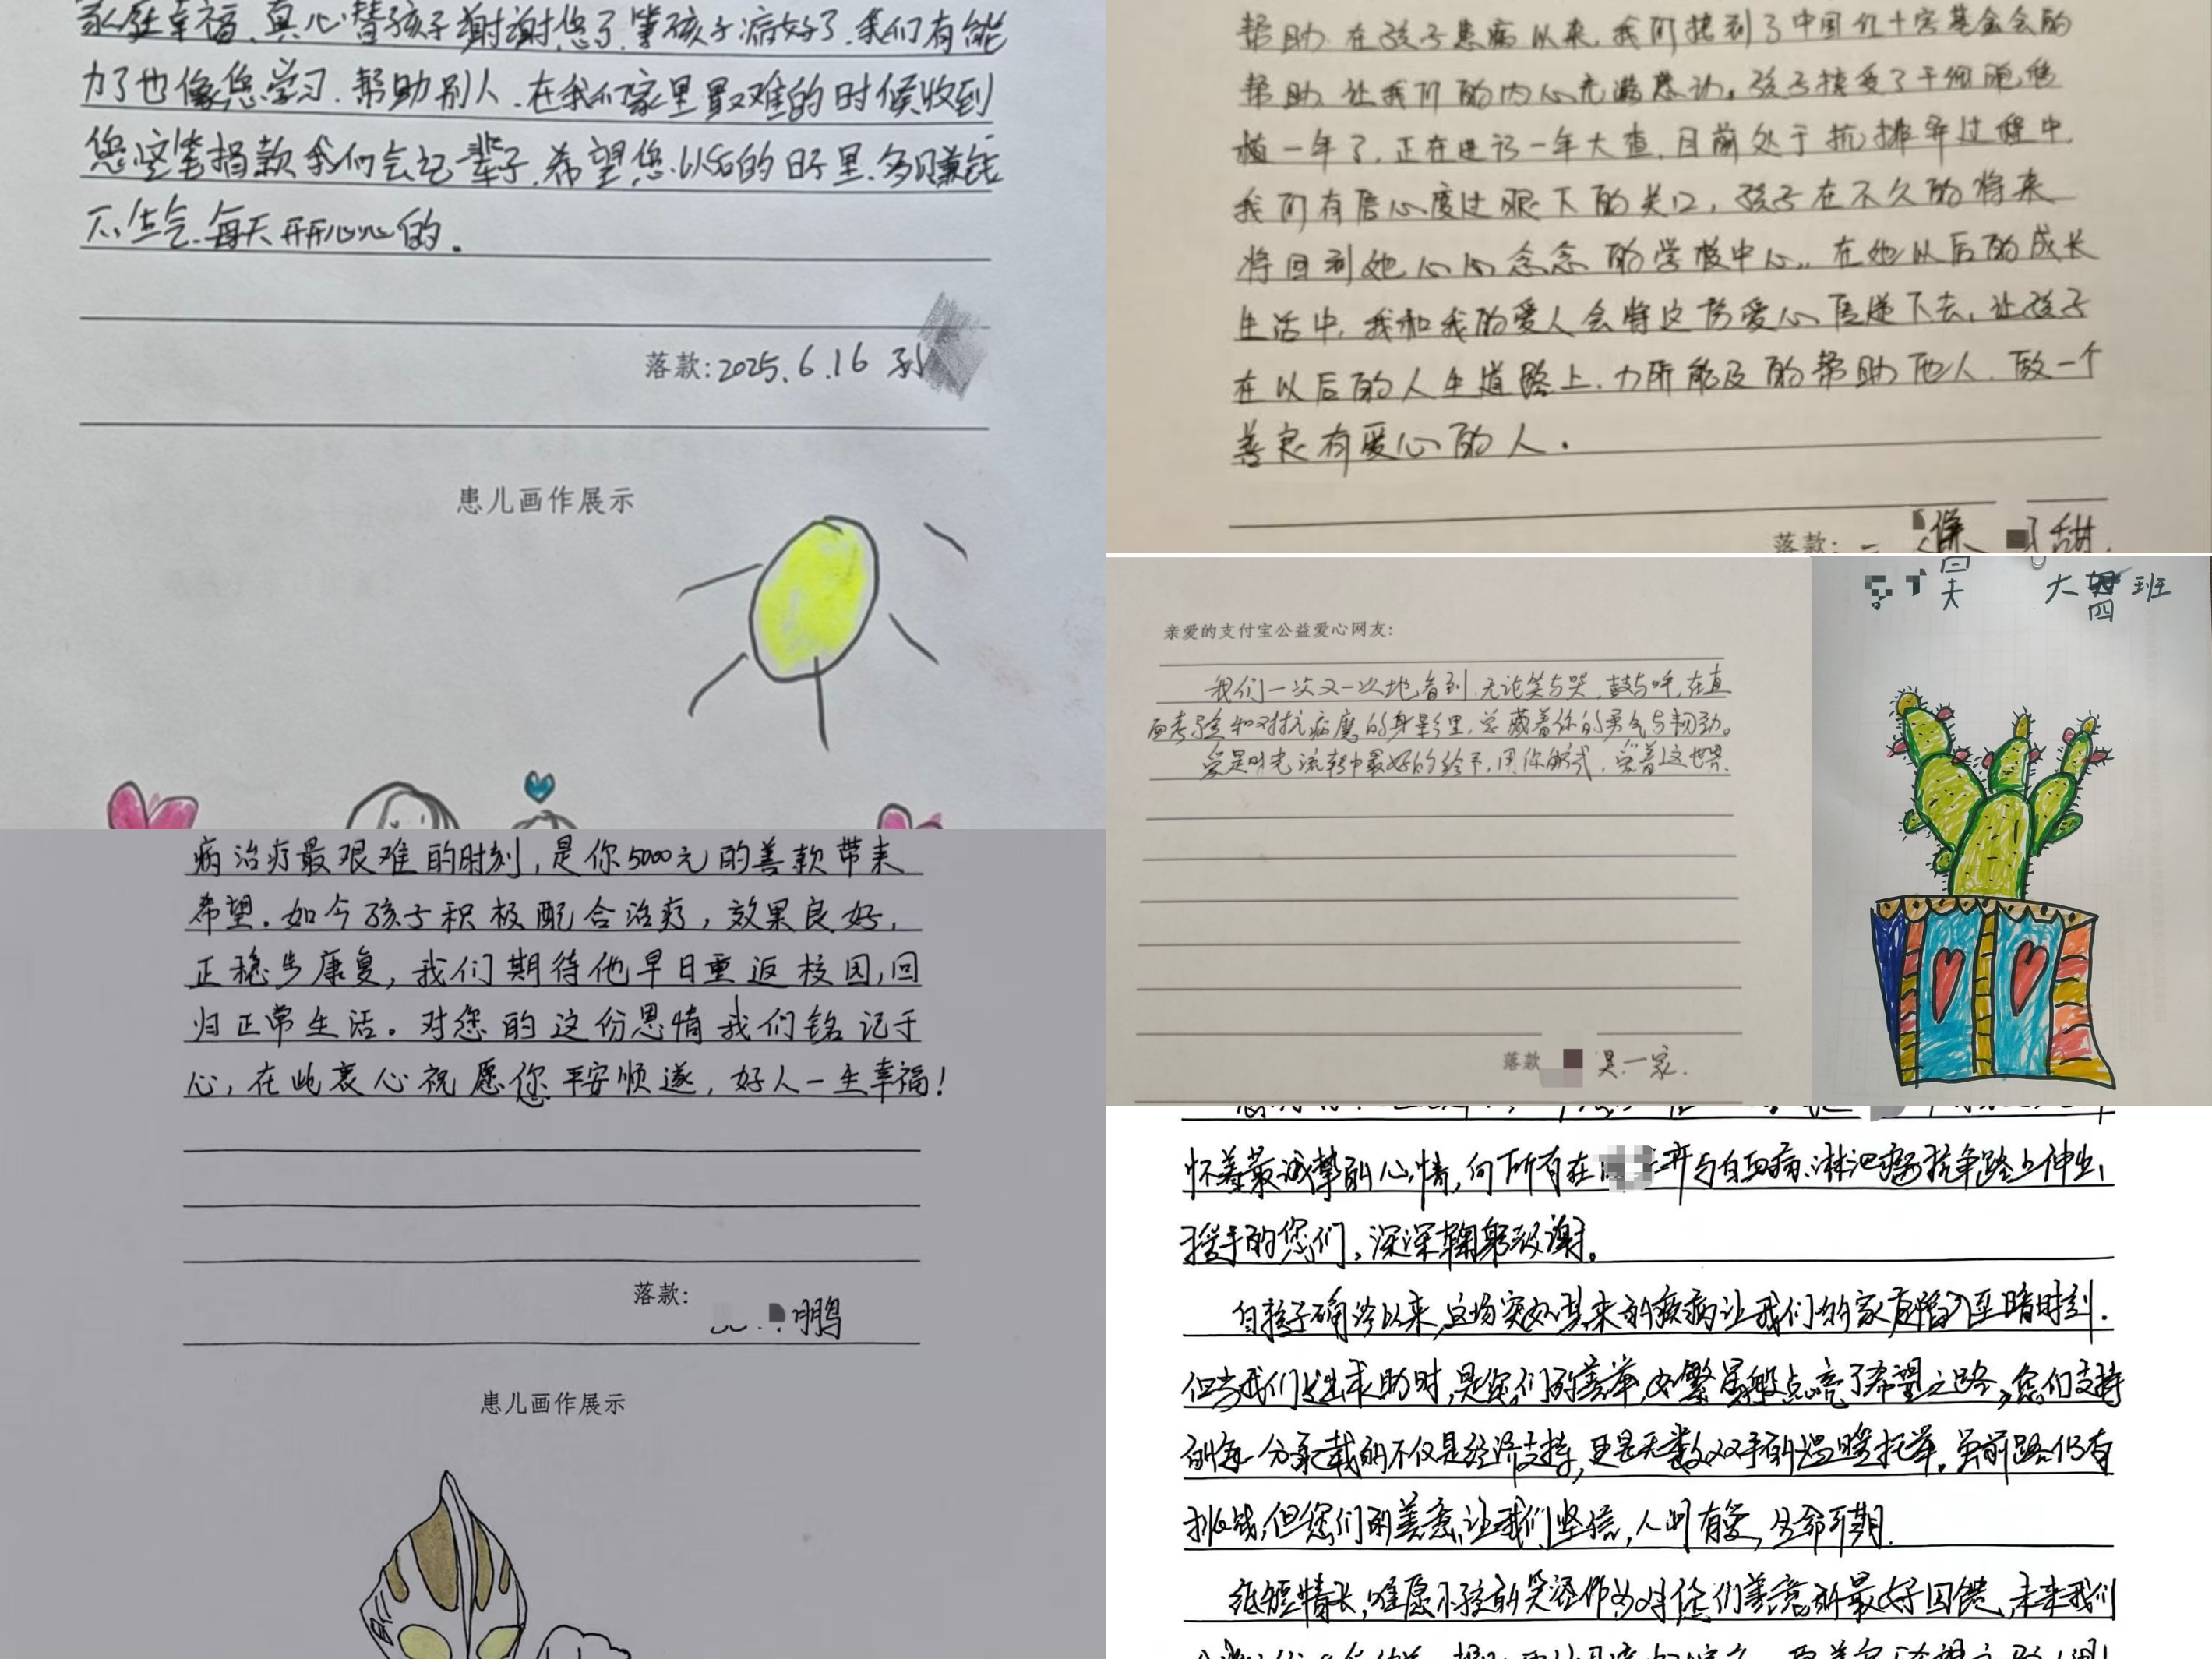 家庭幸福.真心替孩子谢谢您了.等孩子病好了.我们有能
力了也像您学习.帮助别人.在我们家里最难的时候收到
您这笔捐款我们会记一辈子.希望您.以后的日子里.多赚钱
不生气.每天开开心心的.
落款:2025.6.16 孙
患儿画作展示
病治疗最艰难的时刻,是你5000元的善款带来
希望.如今孩子积极配合治疗,效果良好,
正稳步康复,我们期待他早日重返校园,回
归正常生活。对您的这份恩情我们铭记于
心,在此衷心祝愿你平安顺遂,好人一生幸福!
落款:
鹏
患儿画作展示
帮助.在孩子患病以来,我们接到了中国红十字基金会的
帮助,让我们的内心充满感动。孩子接受了干细胞移
植一年了,正在进行一年大查.目前处于抗排异过程中.
我们有信心度过眼下的关口,孩子在不久的将来
将回到她心心念念的学校中心..在她以后的成长
生活中,我和我的爱人会将这份爱心传递下去,让孩子
在以后的人生道路上.力所能及的帮助他人.做一个
善良有爱心的人.
落款: 甜.
亲爱的支付宝公益爱心网友:
我们一次又一次地看到.无论笑与哭,鼓与呼,在直
面考验和对抗病魔的身影里,总藏着你的勇气与韧劲。
爱是时光流转中最好的给予,用你的方式,爱着这世界.
落款 昊一家.
昊 大四班
怀着最诚挚的心情,向所有在 与白血病、淋巴瘤抗争路上伸出
援手的您们,深深鞠躬致谢。
自孩子确诊以来,这场突如其来的疾病让我们的家庭陷入至暗时刻.
但当我们发出求助时,是您们的善举,如繁星般点亮了希望之路,您们支持
的每一分承载的不仅是经济支持,更是无数双手的温暖托举。虽前路仍有
挑战,但您们的善意让我们坚信,人间有爱,生命可期.
纸短情长,唯愿小孩的笑还作为对您们善意的最好回馈,未来我们